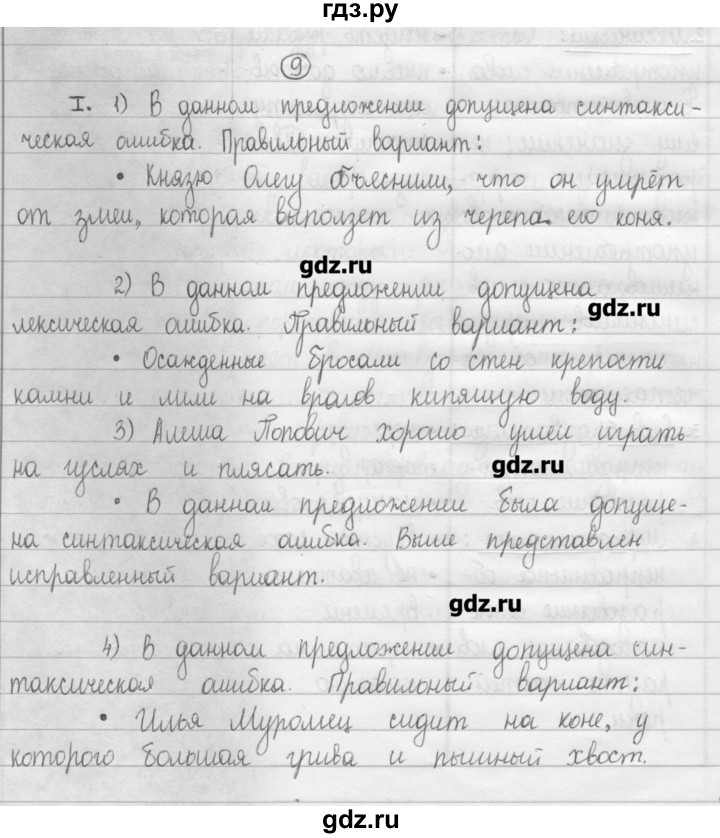 гдз.ру
9
I. 1) В данном предложении допущена синтакси-
ческая ошибка. Правильный вариант:
• Князю Олегу объяснили, что он умрёт
от змеи, которая выползет из черепа его коня.
gdz.ru
2) В данном предложении допущена
gdz.ru
лексическая ошибка. Правильный вариант:
• Осажденные бросали со стен крепости
камни и лили на врагов кипящую воду.
3) Алеша Попович хорошо умел играть
на гуслях и плясать.
gdz.ru
• В данном предложении была допуще-
на синтаксическая ошибка. Выше представлен
исправленный вариант.
gdz.ru
4) В данном предложении допущена син-
таксическая ошибка. Правильный вариант:
• Илья Муромец сидит на коне, у
которого большая грива и пышный хвост.
gdz.ru